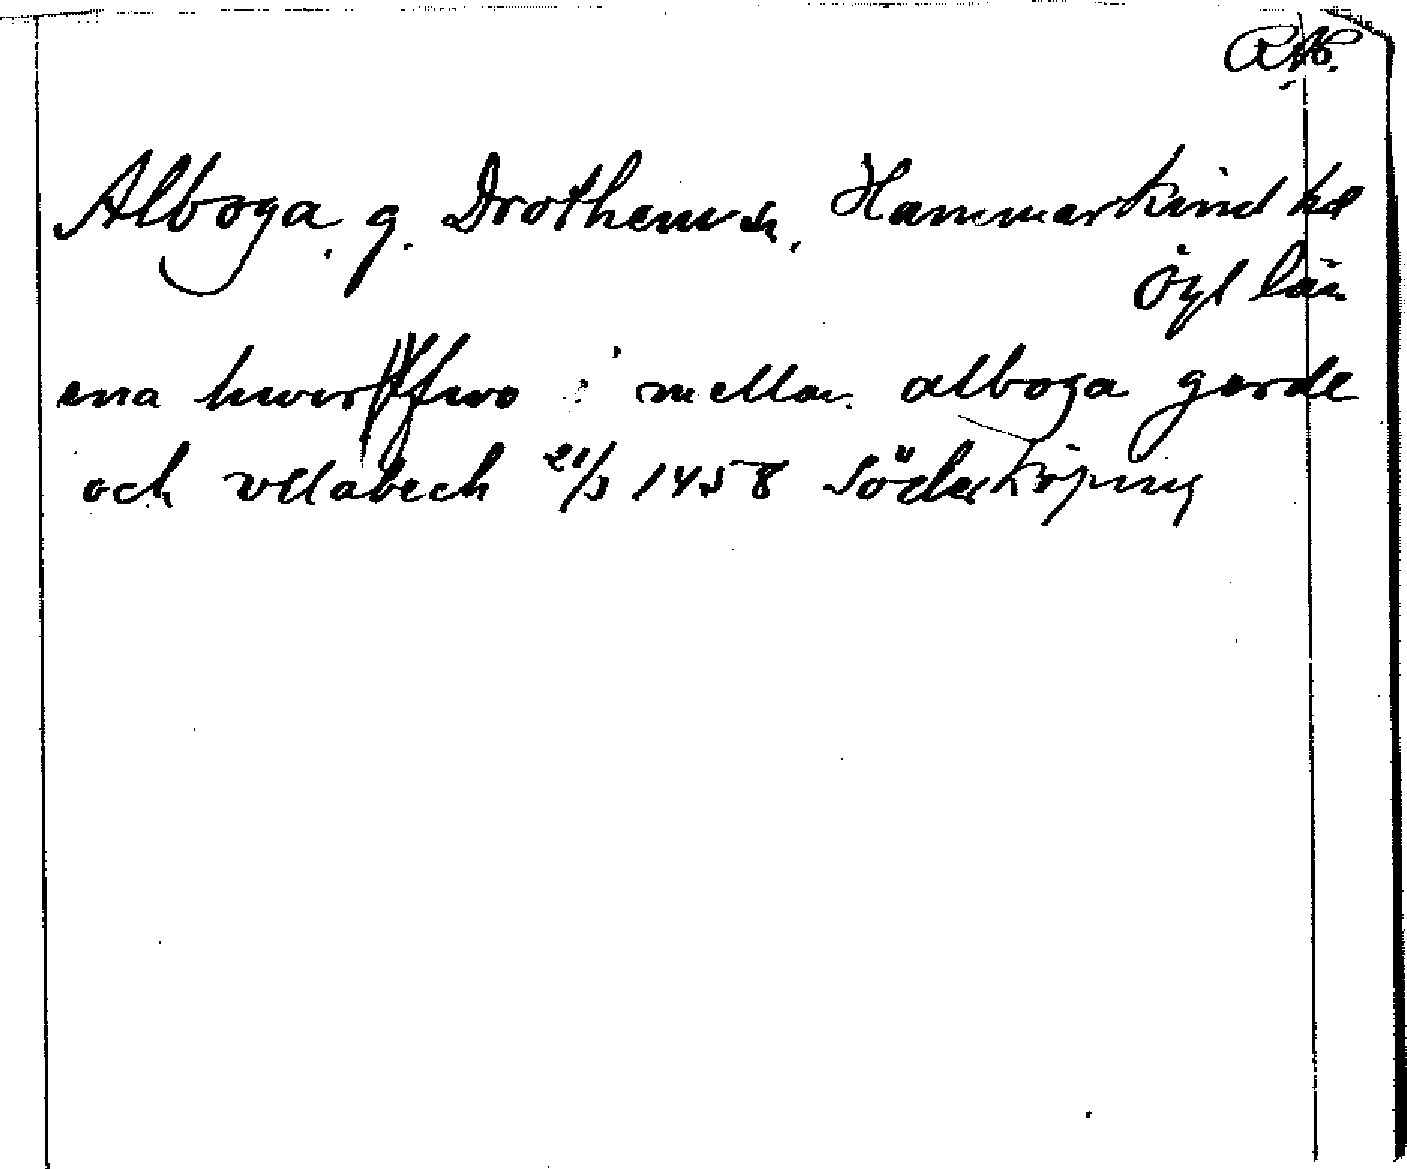 RAP.
Alboga, g. Drothems sn, Hammarkind hd
Ögl län
ena hwerffwo i mellan alboga gerde
och vllabech 21/3 1458 Söderköping